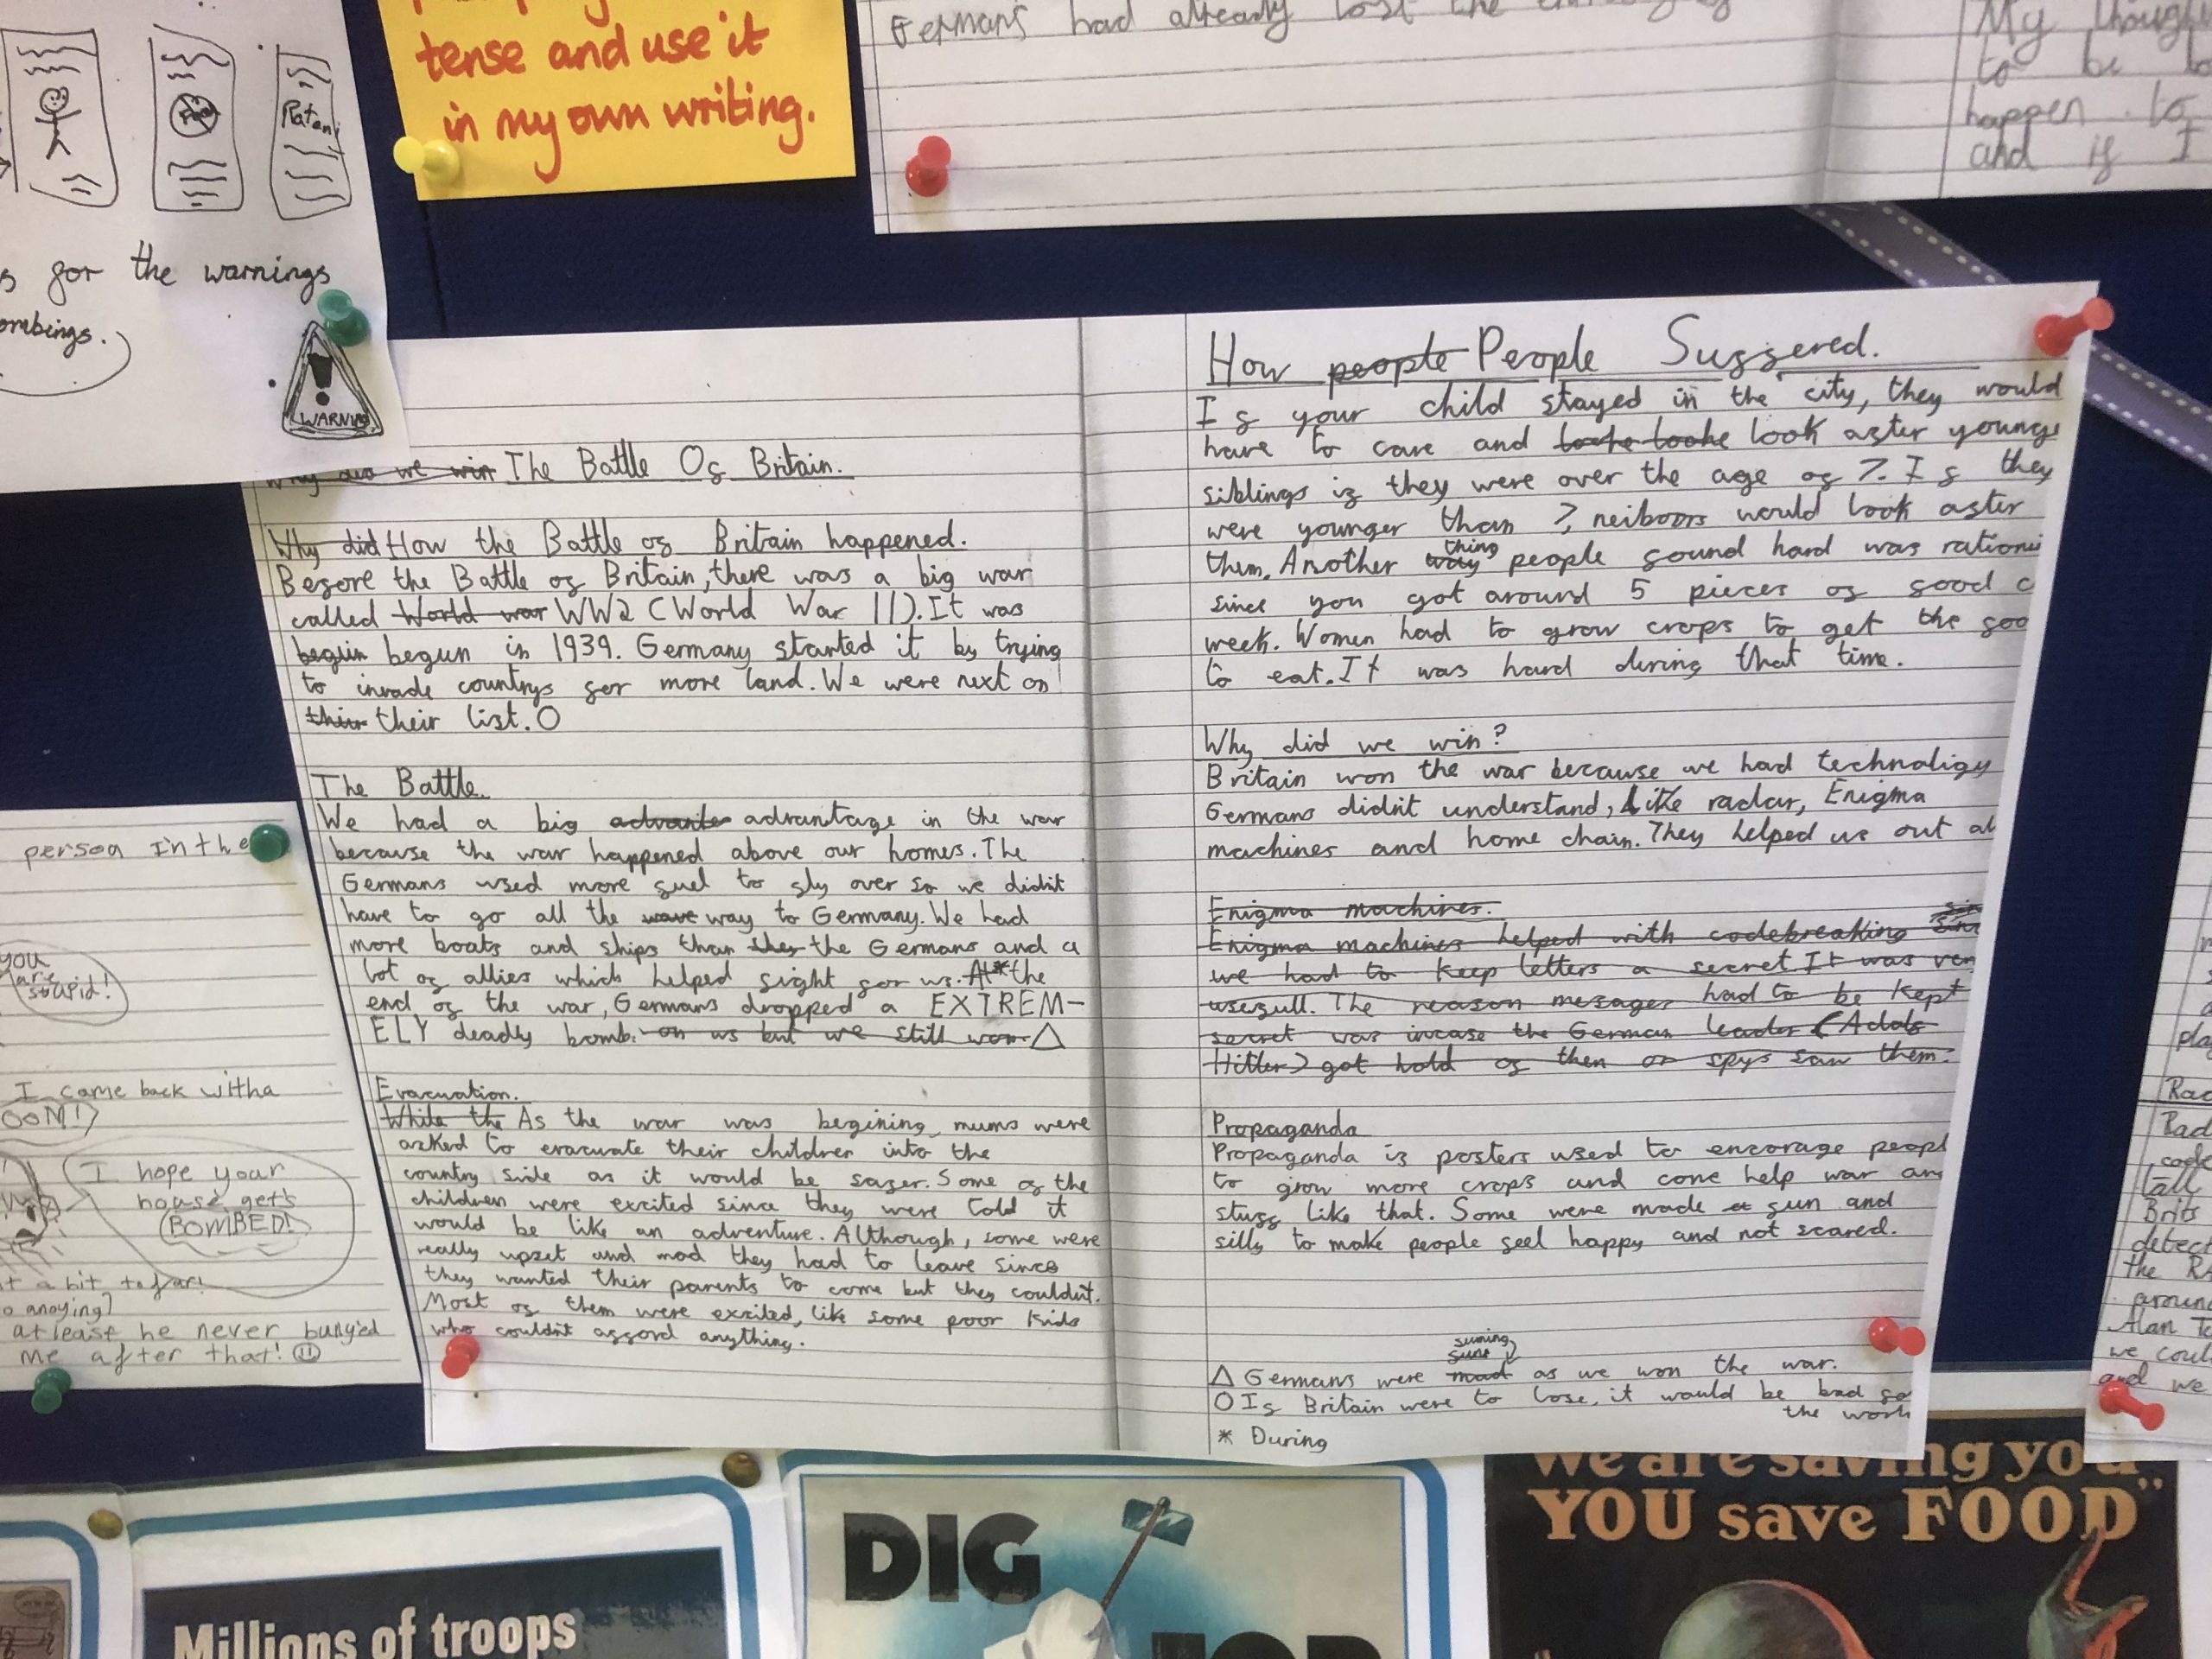 tense and use it
in my own writing.
Germans had already lost the
My
to be
happen to
and if I
for the warnings
WARNING
The Battle Of Britain.
Why did How the Battle of Britain happened.
Before the Battle of Britain, there was a big war
called World war WW2 (World War II). It was
beguin begun in 1939. Germany started it by trying
to invade countrys for more land. We were next on
thier their list. O
The Battle.
We had a big advante advantage in the war
because the war happened above our homes. The
Germans used more fuel to fly over so we didn't
have to go all the wave way to Germany. We had
more boats and ships than they the Germans and a
lot of allies which helped fight for us. At * the
end of the war, Germans dropped a EXTREM-
ELY deadly bomb. on us but we still won △
Evacuation.
While the As the war was begining, mums were
asked to evacuate their children into the
country side as it would be safer. Some of the
children were excited since they were told it
would be like an adventure. Although, some were
really upset and mad they had to leave since
they wanted their parents to come but they couldn't.
Most of them were excited, like some poor kids
who couldn't afford anything.
How people People Suffered.
If your child stayed in the city, they would
have to care and look after
siblings if they were over the age of 7. If they
were younger than 7, neiboors would look after
them. Another way thing people found hard was
since you got around 5 pieces of food
week. Women had to grow crops to get the
to eat. It was hard during that time.
Why did we win?
Britain won the war because we had technoligy
Germans didn't understand, like radar, Enigma
machines and home chain. They helped us out
Enigma machines.
Enigma machines helped with codebreaking
we had to keep letters a secret. It was
usefull. The reason mesages had to be kept
secret was incase the German leader (Adolf
Hitler) got hold of then or spys saw them.
Propaganda
Propaganda is posters used to encorage
to grow more crops and come help war
stuff like that. Some were made fun and
silly to make people feel happy and not scared.
△ Germans were mad fuming as we won the war.
O If Britain were to lose, it would be bad for
the
* During
person in the
you
are
stupid!
I came back with a
I hope your
house gets
BOMBED!
a bit to far!
atleast he never bullyed
me after that!
Brits
the
Alan
and we
Millions of troops
DIG
FOR
We are saving you
YOU save FOOD